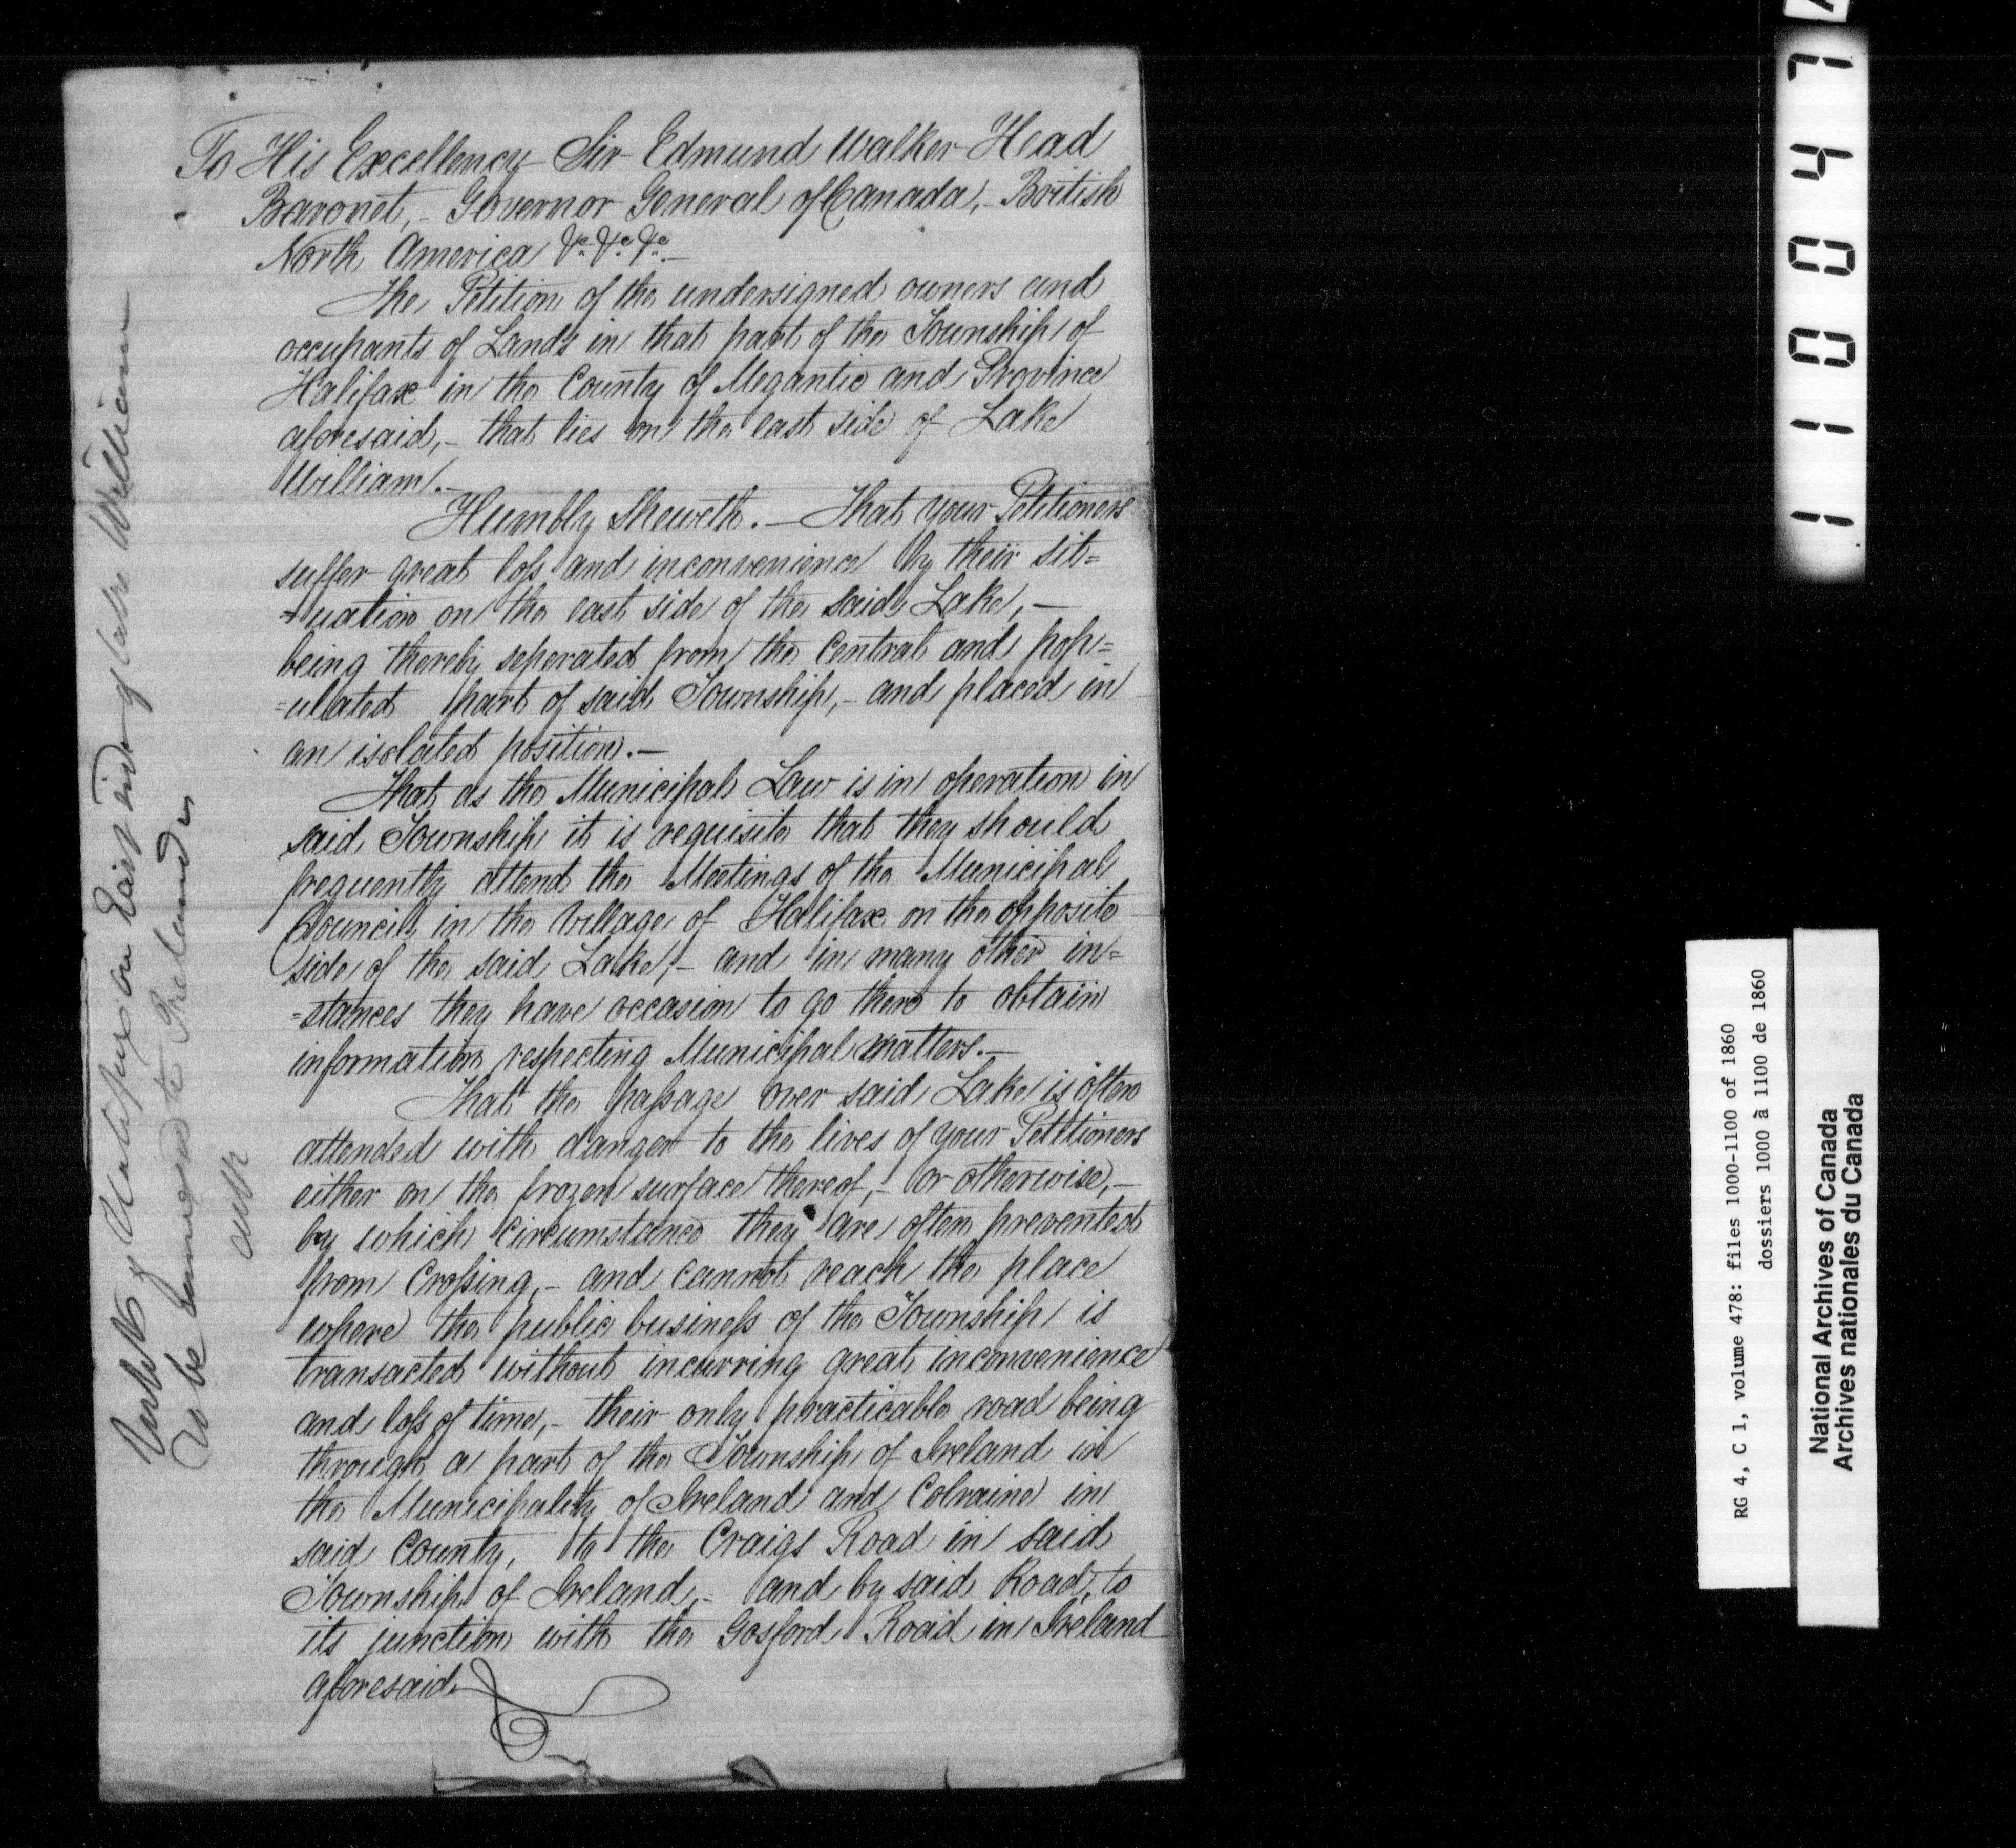 To His Excellency Sir Edmund Walker Head
Baronet,- Governor General of Canada,- British
North America &c. &c. &c.-
The Petition of the undersigned owners and
occupants of Lands in that part of the Township of
Halifax in the County of Megantic and Province
aforesaid,- that lies on the east side of Lake
William.-
Humbly Sheweth.- That your Petitioners
suffer great loss and inconvenience by their sit=
=uation on the east side of the said Lake,-
being thereby seperated from the Central and pop=
=ulated part of said Township,- and placed in
an isolated position.-
That as the Municipal Law is in operation in
said Township it is requisite that they should
frequently attend the Meetings of the Municipal
Council in the Village of Halifax on the opposite
side of the said Lake,- and in many other in=
=stances they have occasion to go there to obtain
information respecting Municipal matters.-
That the passage over said Lake is often
attended with danger to the lives of your Petitioners
either on the frozen surface thereof,- or otherwise,-
by which circumstance they are often prevented
from Crossing,- and cannot reach the place
where the public business of the Township is
transacted without incurring great inconvenience
and loss of time,- their only practicable road being
through a part of the Township of Ireland in
the Municipality of Ireland and Colraine in
said County, to the Craigs Road in said
Township of Ireland,- and by said Road to
its junction with the Gosford Road in Ireland
aforesaid
of Halifax on East end of lake William
to be annexed to Ireland
11047
RG 4, C 1, volume 478: files 1000-1100 of 1860
dossiers 1000 à 1100 de 1860
National Archives of Canada
Archives nationales du Canada